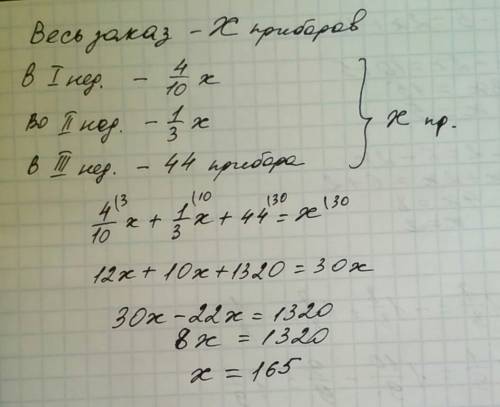 Весь заказ – x приборов
В I нед. – 4/10 x
Во II нед. – 1/3 x
В III нед. – 44 прибора
} x пр.
4/10 (3 x + 1/3 (10 x + 44 (30 = x (30
12x + 10x + 1320 = 30x
30x – 22x = 1320
8x = 1320
x = 165